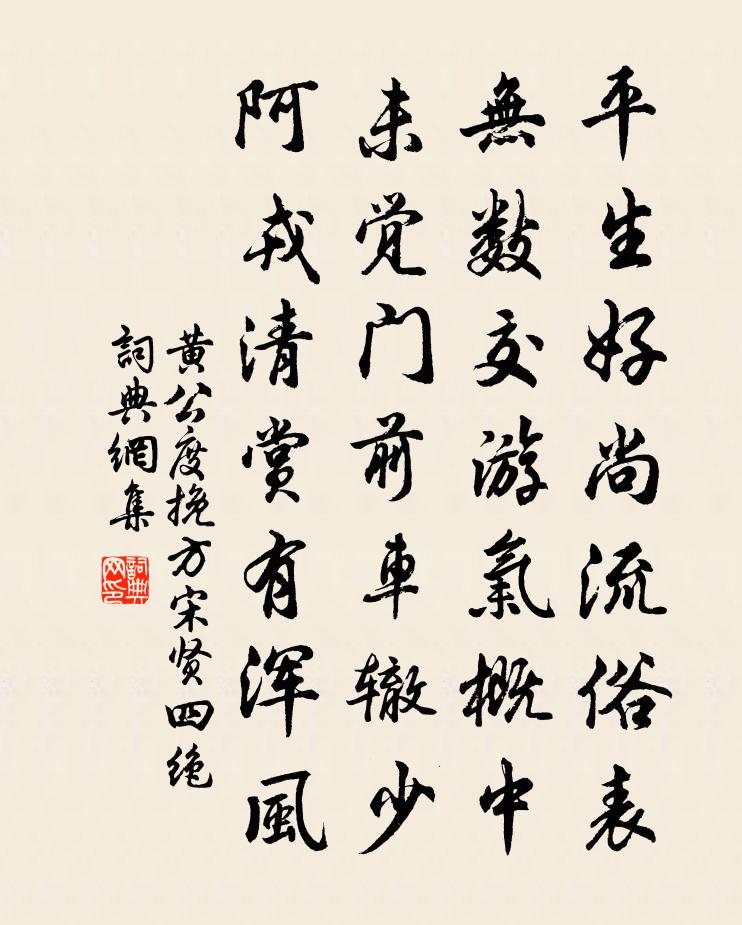 平生好尚流俗表
無数交游氣概中
未觉门前車辙少
阿戎清赏有浑風
黄公度挽方宋贤四绝
詞典網集
詞典网印